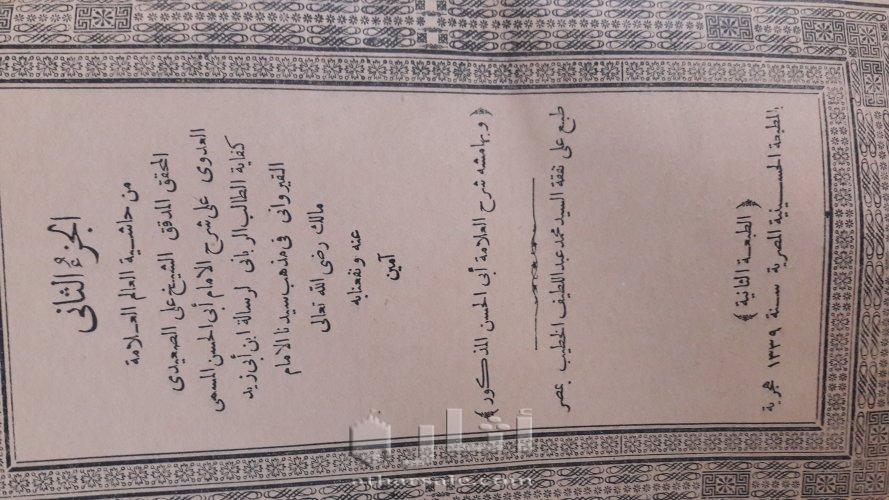 الجزء الثانى
من حاشية العالم العلامة
المحقق المدقق الشيخ على الصعيدى
العدوى على شرح الامام أبى الحسن المسمى
كفاية الطالب الربانى لرسالة ابن أبى زيد
القيروانى فى مذهب سيدنا الامام
مالك رضى الله تعالى
عنه ونفعنا به
آمين
﴿ وبهامشه شرح العلامة أبى الحسن المذكور ﴾
طبع على نفقة السيد محمد عبد اللطيف الخطيب بمصر
﴿ الطبعة الثانية ﴾
المطبعة الحسينية المصرية سنة ١٣٣٩ هجرية
أثارة